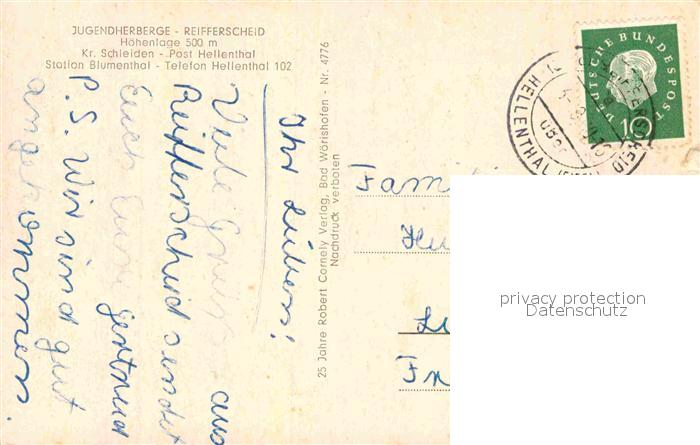 JUGENDHERBERGE - REIFFERSCHEID
Höhenlage 500 m
Kr. Schleiden - Post Hellenthal
Station Blumenthal - Telefon Hellenthal 102
Ihr Lieben!
Viele Grüße aus
Reifferscheid sendet
Euch Eure Gertrud
P.S. Wir sind gut
angekommen.
25 Jahre Robert Cornely Verlag, Bad Wörishofen - Nr. 4776
Nachdruck verboten
DEUTSCHE BUNDESPOST
10
HELLENTHAL (EIFEL)
REIFFERSCHEID
Fami
privacy protection
Datenschutz